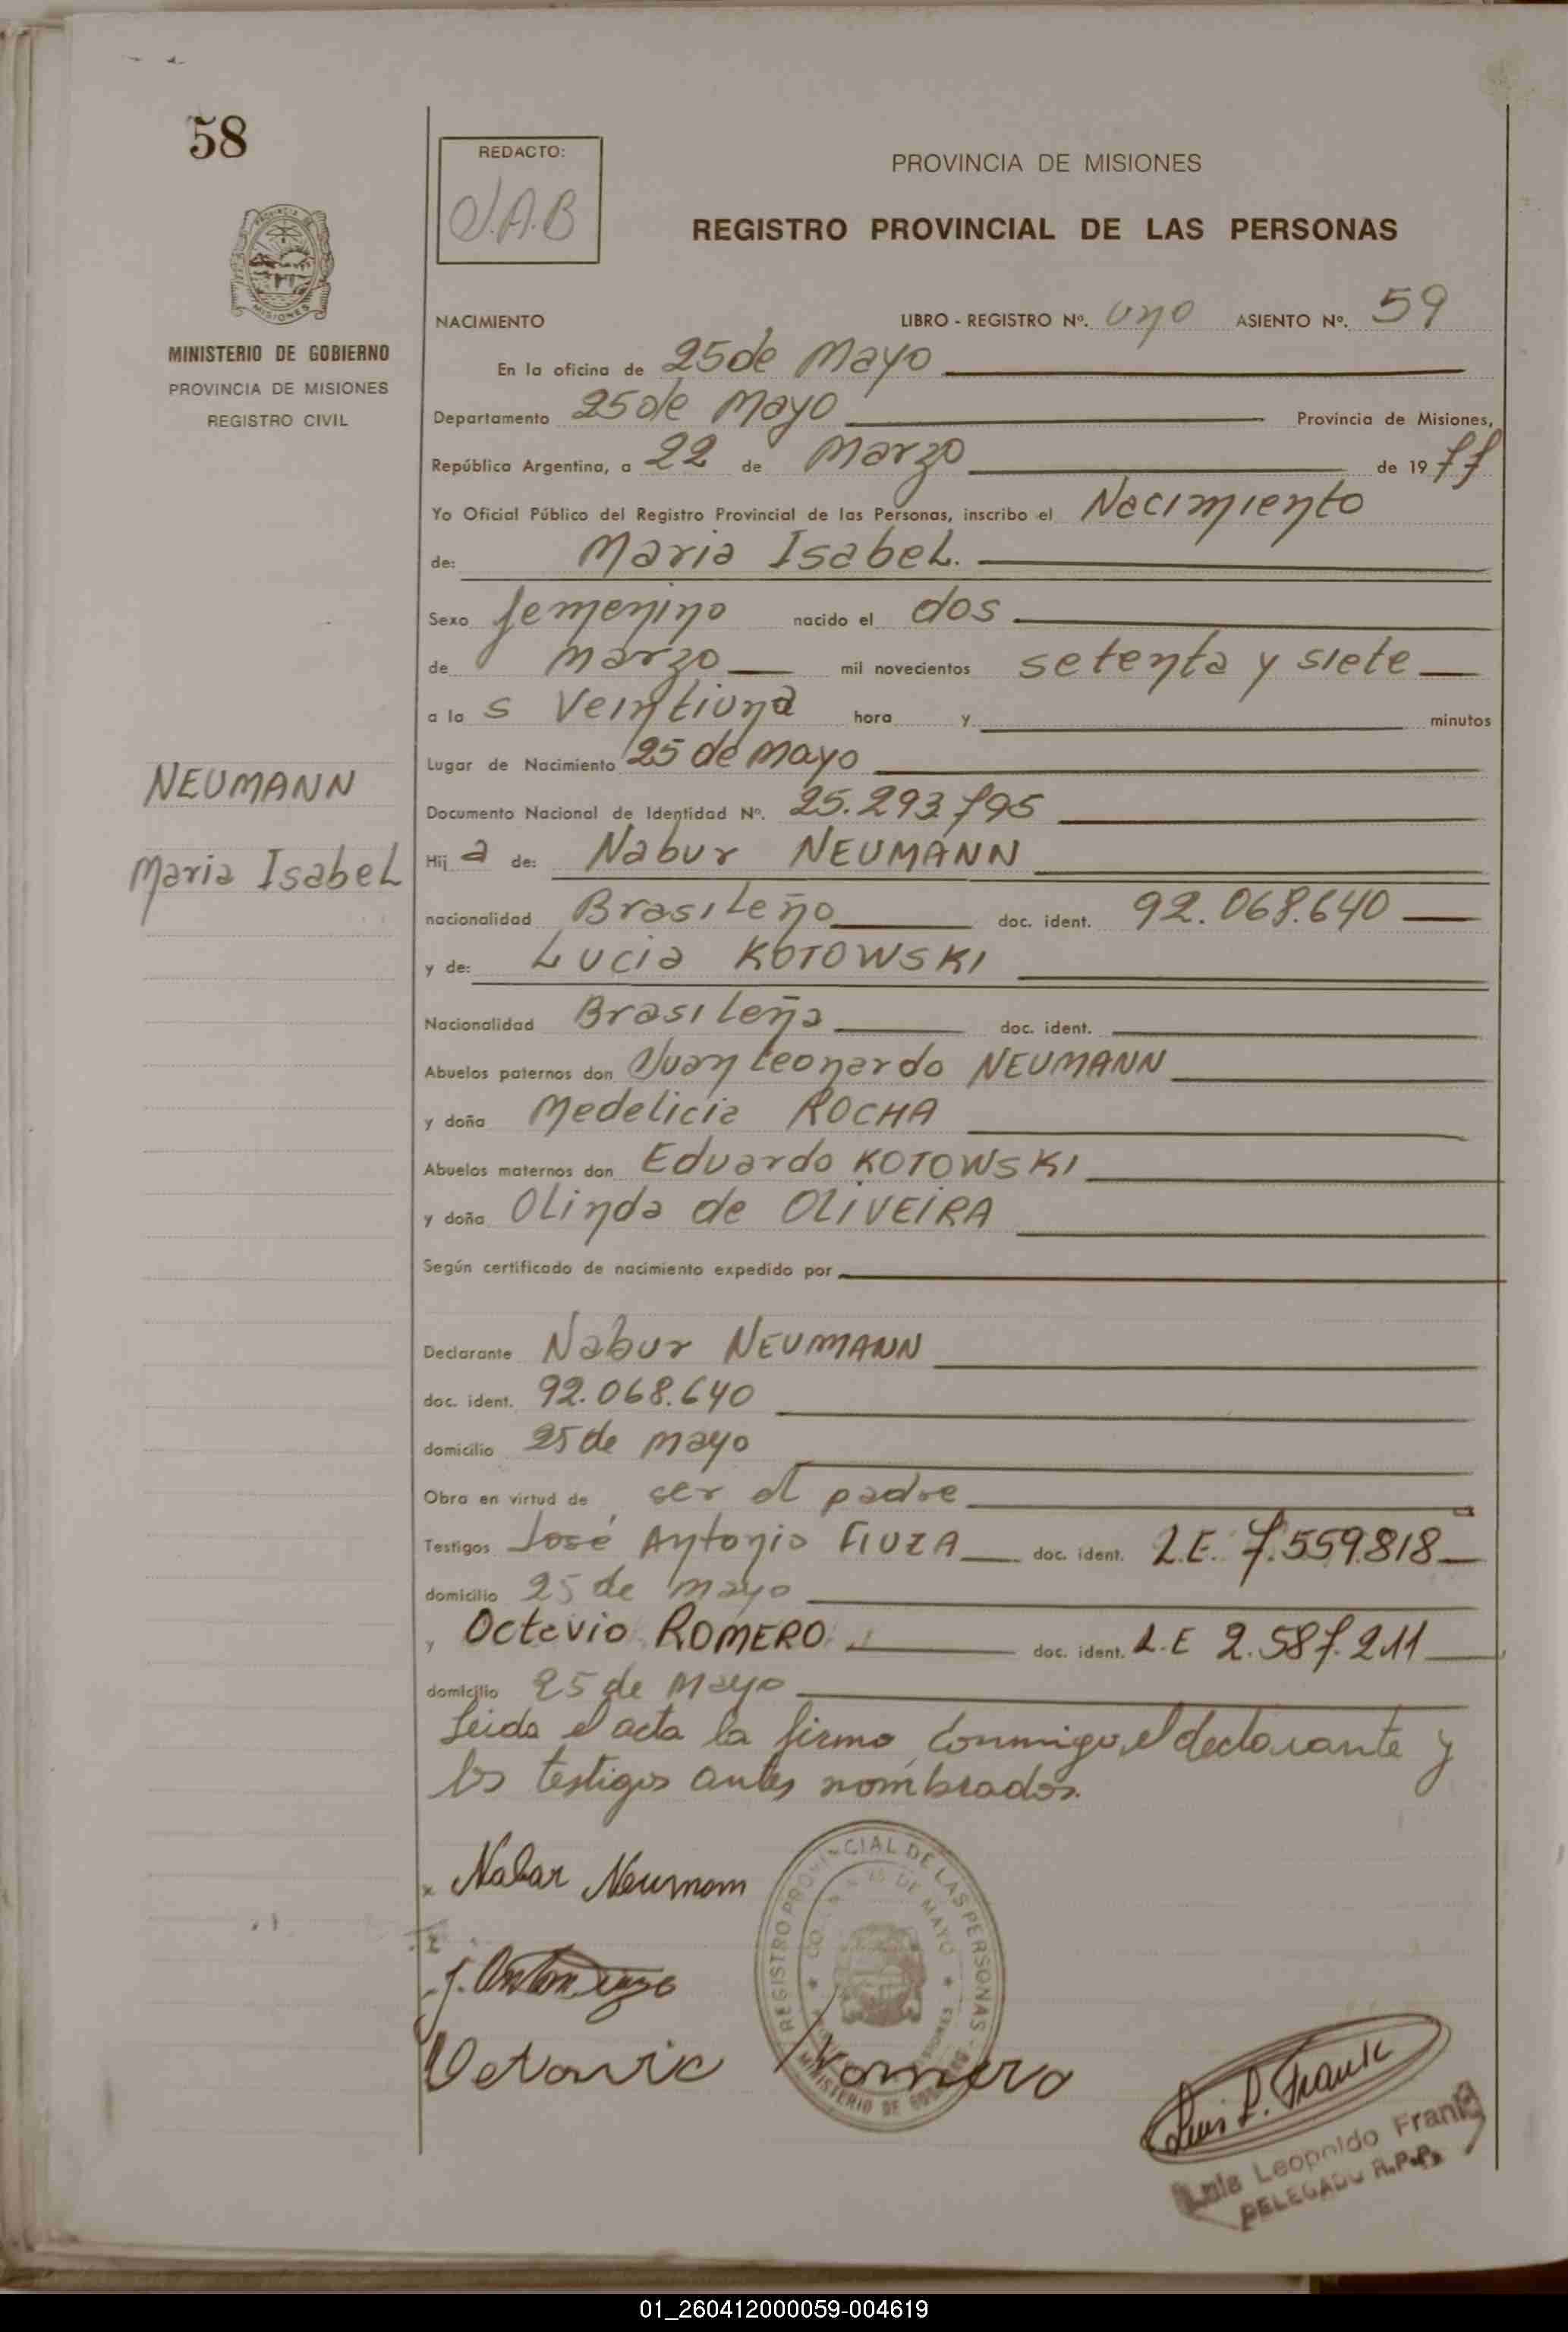 58
REDACTO:
J.A.B
PROVINCIA DE MISIONES
REGISTRO PROVINCIAL DE LAS PERSONAS
MINISTERIO DE GOBIERNO
PROVINCIA DE MISIONES
REGISTRO CIVIL
NACIMIENTO LIBRO - REGISTRO Nº. uno ASIENTO Nº. 59
En la oficina de 25 de Mayo
Departamento 25 de Mayo Provincia de Misiones,
República Argentina, a 22 de Marzo de 19 77
Yo Oficial Público del Registro Provincial de las Personas, inscribo el Nacimiento
de: Maria Isabel.
Sexo femenino nacido el dos
de marzo mil novecientos setenta y siete
a la s veintiuna hora y minutos
Lugar de Nacimiento 25 de Mayo
NEUMANN
Maria Isabel
Documento Nacional de Identidad Nº. 25.293.795
Hij a de: Nabur NEUMANN
nacionalidad Brasileño doc. ident. 92.068.640
y de: Lucia KOTOWSKI
Nacionalidad Brasileña doc. ident.
Abuelos paternos don Juan Leonardo NEUMANN
y doña Medelicia ROCHA
Abuelos maternos don Eduardo KOTOWSKI
y doña Olinda de OLIVEIRA
Según certificado de nacimiento expedido por
Declarante Nabur NEUMANN
doc. ident. 92.068.640
domicilio 25 de mayo
Obra en virtud de ser el padre
Testigos José Antonio FIUZA doc. ident. L.E. 7.559.818
domicilio 25 de mayo
y Octavio ROMERO doc. ident. L.E 2.587.211
domicilio 25 de Mayo
Leida el acta la firma conmigo, el declarante y
los testigos antes nombrados.
x Nabur Neumann
REGISTRO PROVINCIAL DE LAS PERSONAS
25 DE MAYO
MINISTERIO DE GOBIERNO
Octavio Romero
Luis L. Frank
Luis Leopoldo Frank
DELEGADO R.P.P.
01_260412000059-004619